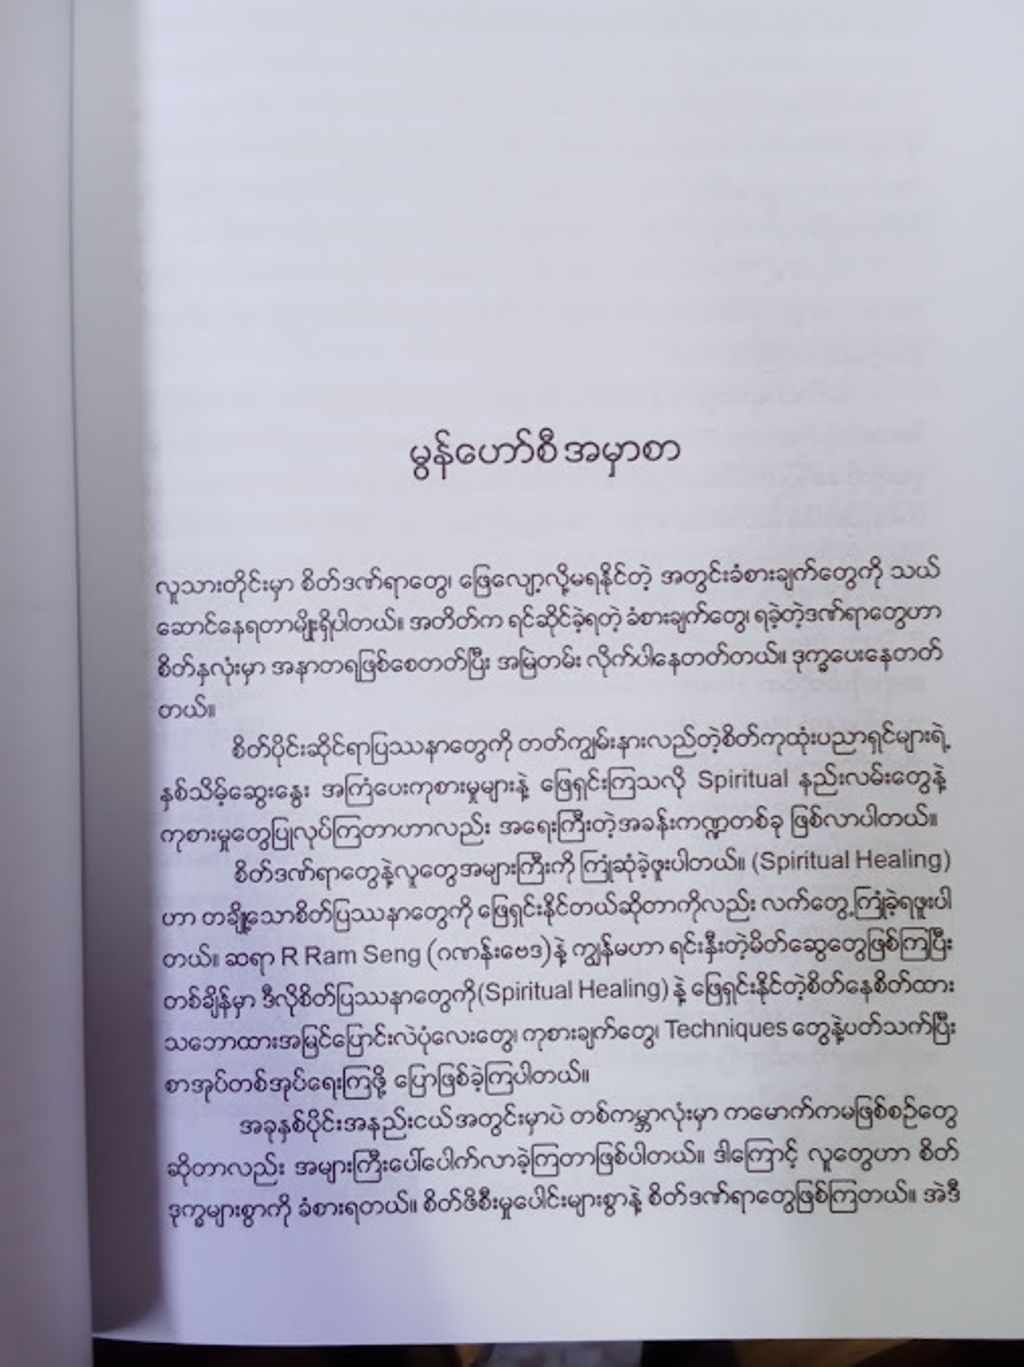 မွန်ဟော်စီ အမှာစာ
လူသားတိုင်းမှာ စိတ်ဒဏ်ရာတွေ၊ ဖြေလျော့လို့မရနိုင်တဲ့ အတွင်းခံစားချက်တွေကို သယ်
ဆောင်နေရတာမျိုးရှိပါတယ်။ အတိတ်က ရင်ဆိုင်ခဲ့ရတဲ့ ခံစားချက်တွေ၊ ရခဲ့တဲ့ဒဏ်ရာတွေဟာ
စိတ်နှလုံးမှာ အနာတရဖြစ်စေတတ်ပြီး အမြဲတမ်း လိုက်ပါနေတတ်တယ်။ ဒုက္ခပေးနေတတ်
တယ်။
စိတ်ပိုင်းဆိုင်ရာပြဿနာတွေကို တတ်ကျွမ်းနားလည်တဲ့စိတ်ကုထုံးပညာရှင်များရဲ့
နှစ်သိမ့်ဆွေးနွေး အကြံပေးကုစားမှုများနဲ့ ဖြေရှင်းကြသလို Spiritual နည်းလမ်းတွေနဲ့
ကုစားမှုတွေပြုလုပ်ကြတာဟာလည်း အရေးကြီးတဲ့အခန်းကဏ္ဍတစ်ခု ဖြစ်လာပါတယ်။
စိတ်ဒဏ်ရာတွေနဲ့လူတွေအများကြီးကို ကြုံဆုံခဲ့ဖူးပါတယ်။ (Spiritual Healing)
ဟာ တချို့သောစိတ်ပြဿနာတွေကို ဖြေရှင်းနိုင်တယ်ဆိုတာကိုလည်း လက်တွေ့ကြုံခဲ့ရဖူးပါ
တယ်။ ဆရာ R Ram Seng (ဂဏန်းဗေဒ)နဲ့ ကျွန်မဟာ ရင်းနှီးတဲ့မိတ်ဆွေတွေဖြစ်ကြပြီး
တစ်ချိန်မှာ ဒီလိုစိတ်ပြဿနာတွေကို(Spiritual Healing) နဲ့ ဖြေရှင်းနိုင်တဲ့စိတ်နေစိတ်ထား
သဘောထားအမြင်ပြောင်းလဲပုံလေးတွေ၊ ကုစားချက်တွေ၊ Techniques တွေနဲ့ပတ်သက်ပြီး
စာအုပ်တစ်အုပ်ရေးကြဖို့ ပြောဖြစ်ခဲ့ကြပါတယ်။
အခုနှစ်ပိုင်းအနည်းငယ်အတွင်းမှာပဲ တစ်ကမ္ဘာလုံးမှာ ကမောက်ကမဖြစ်စဉ်တွေ
ဆိုတာလည်း အများကြီးပေါ်ပေါက်လာခဲ့ကြတာဖြစ်ပါတယ်။ ဒါကြောင့် လူတွေဟာ စိတ်
ဒုက္ခများစွာကို ခံစားရတယ်။ စိတ်ဖိစီးမှုပေါင်းများစွာနဲ့ စိတ်ဒဏ်ရာတွေဖြစ်ကြတယ်။ အဲဒီ